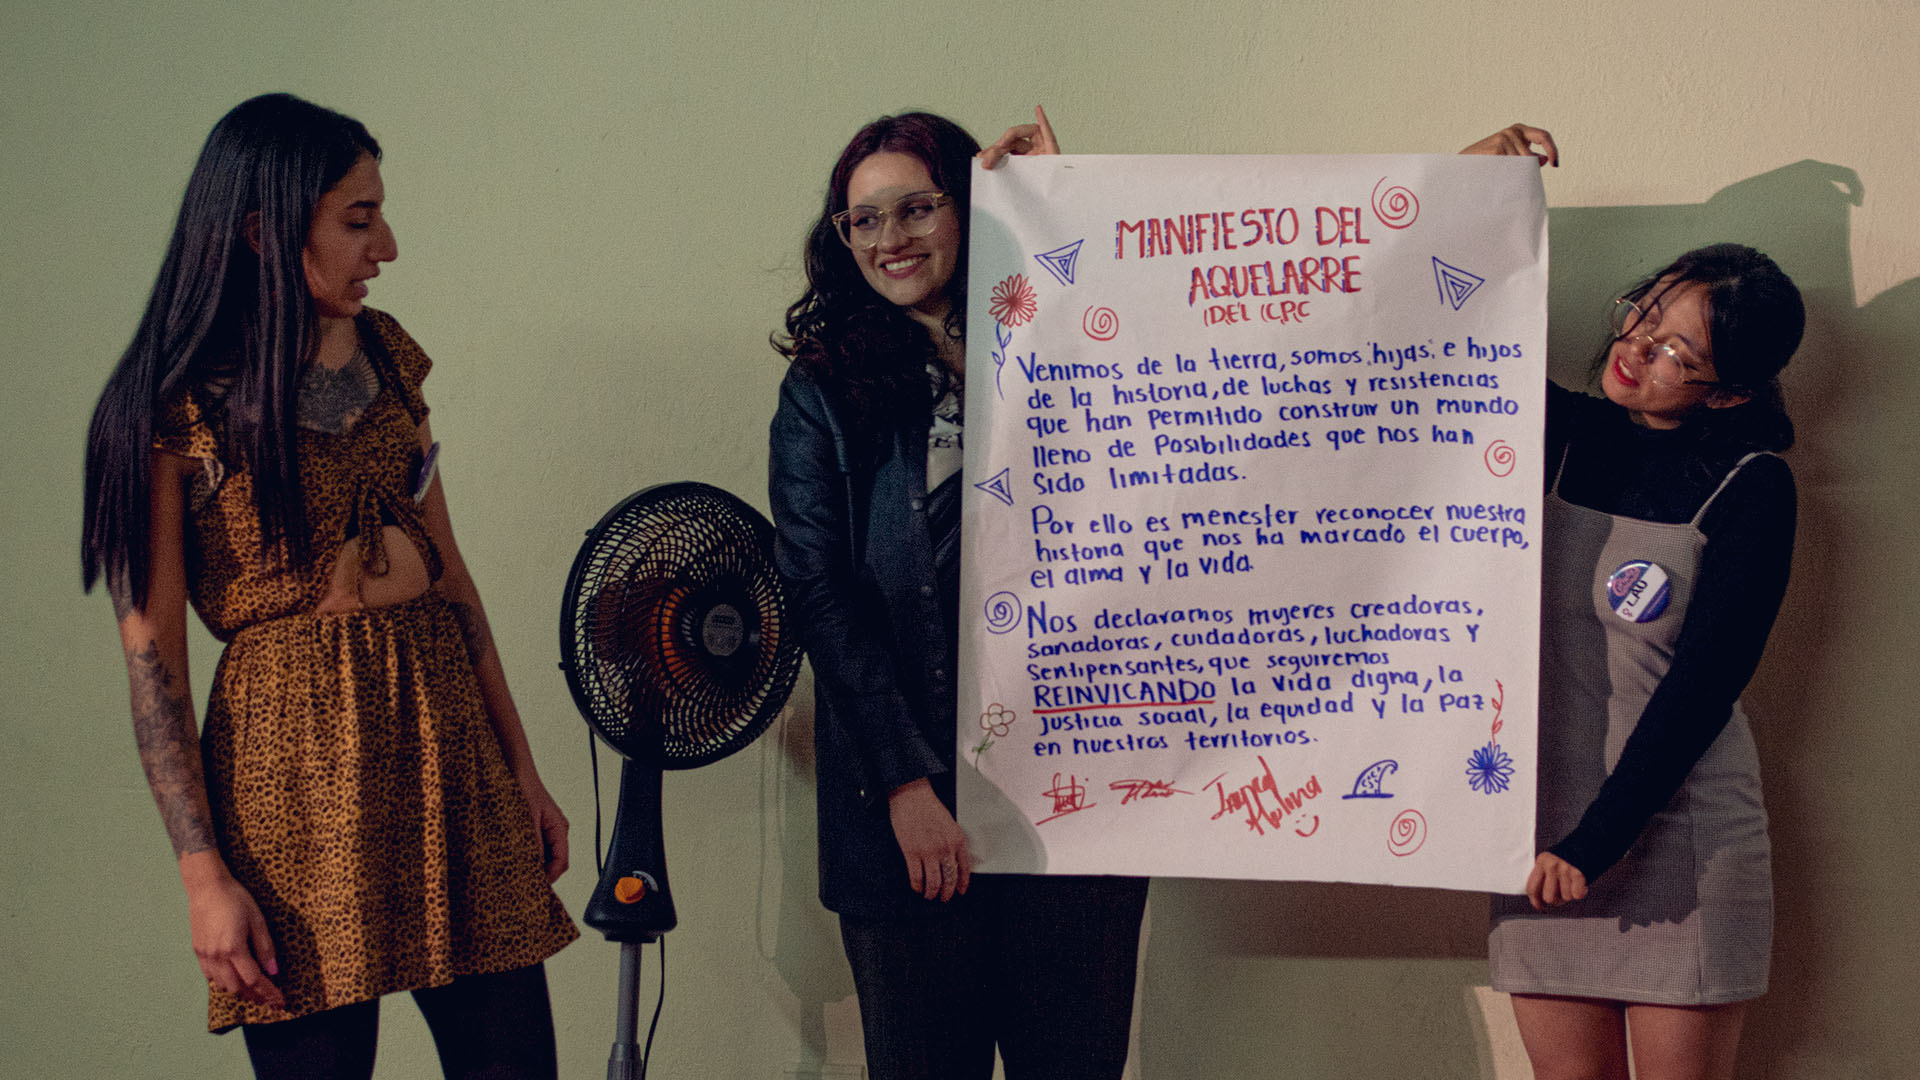 MANIFIESTO DEL
AQUELARRE
DEL CPC
Venimos de la tierra, somos hijas e hijos
de la historia, de luchas y resistencias
que han permitido construir un mundo
lleno de posibilidades que nos han
sido limitadas.
Por ello es menester reconocer nuestra
historia que nos ha marcado el cuerpo,
el alma y la vida.
Nos declaramos mujeres creadoras,
sanadoras, cuidadoras, luchadoras y
sentipensantes, que seguiremos
REINVICANDO la vida digna, la
justicia social, la equidad y la paz
en nuestros territorios.
LAU